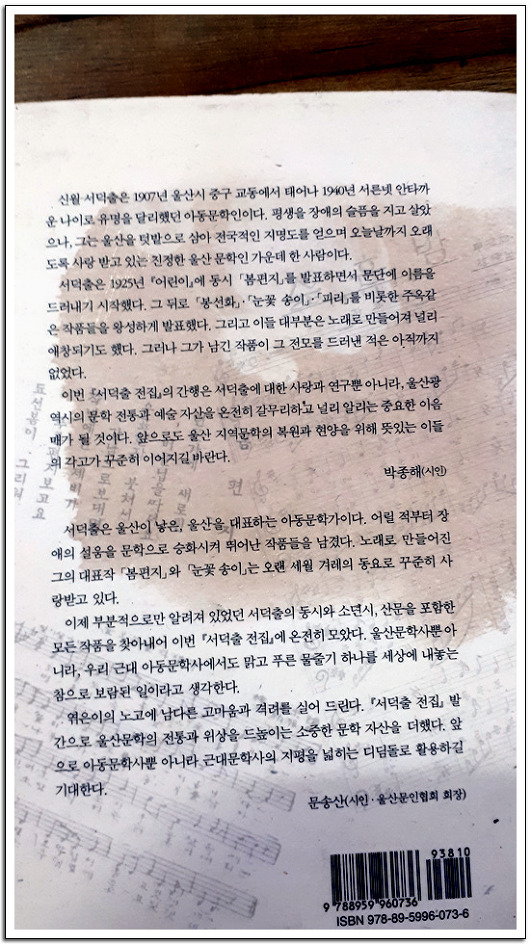 신월 서덕출은 1907년 울산시 중구 교동에서 태어나 1940년 서른넷 안타까
운 나이로 유명을 달리했던 아동문학인이다. 평생을 장애의 슬픔을 지고 살았
으나, 그는 울산을 텃밭으로 삼아 전국적인 지명도를 얻으며 오늘날까지 오래
도록 사랑 받고 있는 진정한 울산 문학인 가운데 한 사람이다.
서덕출은 1925년 『어린이』에 동시 「봄편지」를 발표하면서 문단에 이름을
드러내기 시작했다. 그 뒤로 「봉선화」·「눈꽃 송이」·「피리」를 비롯한 주옥같
은 작품들을 왕성하게 발표했다. 그리고 이들 대부분은 노래로 만들어져 널리
애창되기도 했다. 그러나 그가 남긴 작품이 그 전모를 드러낸 적은 아직까지
없었다.
이번 『서덕출 전집』의 간행은 서덕출에 대한 사랑과 연구뿐 아니라, 울산광
역시의 문학 전통과 예술 자산을 온전히 갈무리하고 널리 알리는 중요한 이음
매가 될 것이다. 앞으로도 울산 지역문학의 복원과 현양을 위해 뜻있는 이들
의 각고가 꾸준히 이어지길 바란다.
박종해(시인)
서덕출은 울산이 낳은, 울산을 대표하는 아동문학가이다. 어릴 적부터 장
애의 설움을 문학으로 승화시켜 뛰어난 작품들을 남겼다. 노래로 만들어진
그의 대표작 「봄편지」와 「눈꽃 송이」는 오랜 세월 겨레의 동요로 꾸준히 사
랑받고 있다.
이제 부분적으로만 알려져 있었던 서덕출의 동시와 소년시, 산문을 포함한
모든 작품을 찾아내어 이번 『서덕출 전집』에 온전히 모았다. 울산문학사뿐 아
니라, 우리 근대 아동문학사에서도 맑고 푸른 물줄기 하나를 세상에 내놓는
참으로 보람된 일이라고 생각한다.
엮은이의 노고에 남다른 고마움과 격려를 실어 드린다. 『서덕출 전집』 발
간으로 울산문학의 전통과 위상을 드높이는 소중한 문학 자산을 더했다. 앞
으로 아동문학사뿐 아니라 근대문학사의 지평을 넓히는 디딤돌로 활용하길
기대한다.
문송산(시인·울산문인협회 회장)
93810
9 788959 960736
ISBN 978-89-5996-073-6